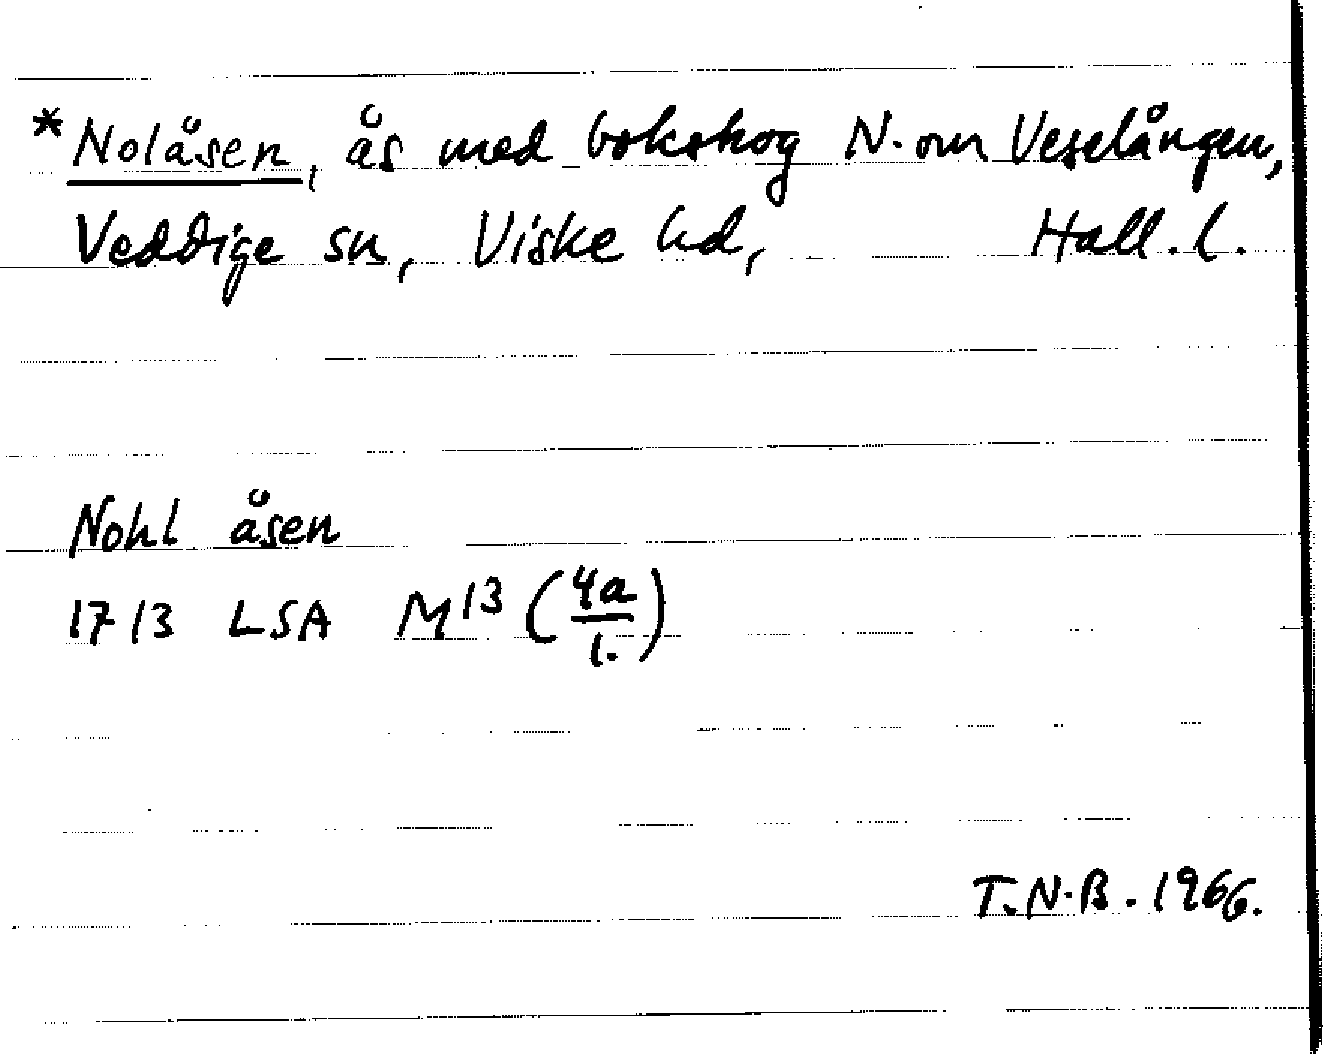 *Nolåsen, ås med bokskog N. om Veselången,
Veddige sn, Viske hd, Hall. l.
Nohl åsen
1713 LSA M13 (4a/1.)
T.N.B. 1966.